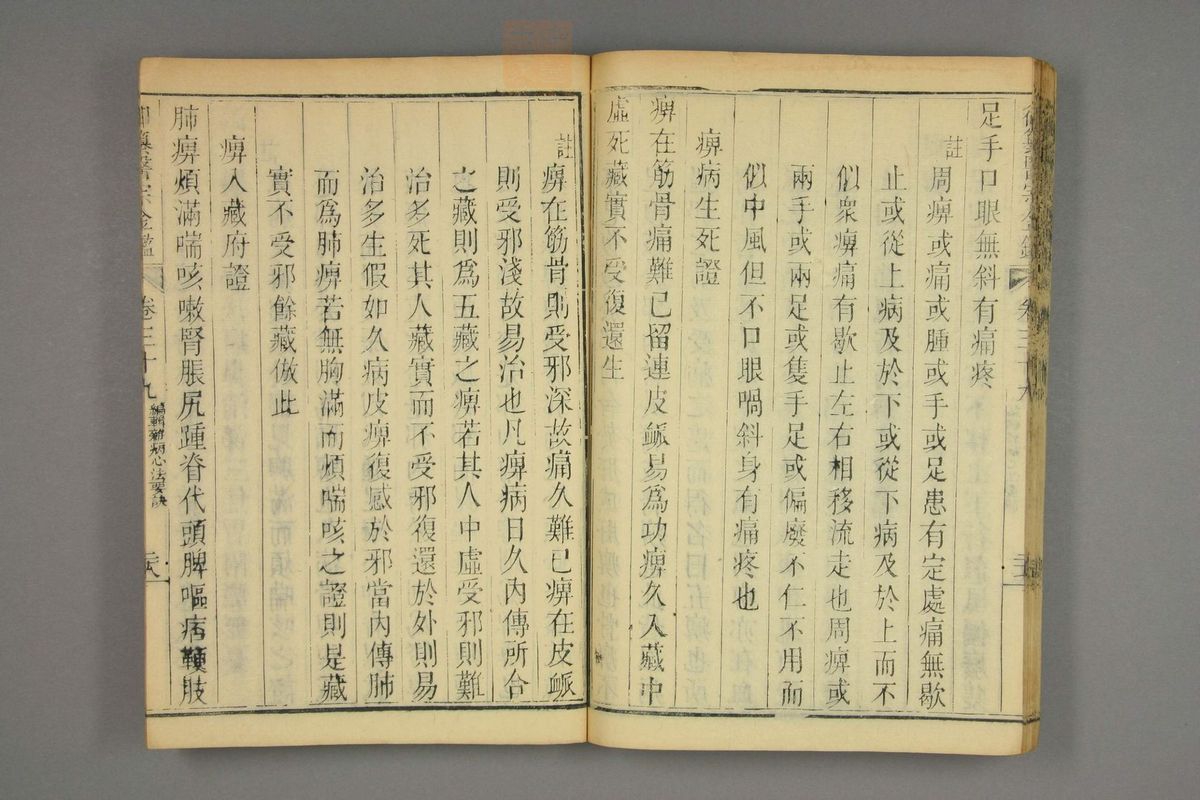 足手口眼無斜有痛疼
註
周痹或痛或腫或手或足患有定處痛無歇
止或從上病及於下或從下病及於上而不
似衆痹痛有歇止左右相移流走也周痹或
兩手或兩足或隻手足或偏廢不仁不用而
似中風但不口眼喎斜身有痛疼也
痹病生死證
痹在筋骨痛難已留連皮䘑易爲功痹久入藏中
虛死藏實不受復還生
註
痹在筋骨則受邪深故痛久難已痹在皮䘑
則受邪淺故易治也凡痹病日久內傳所合
之藏則爲五藏之痹若其人中虛受邪則難
治多死其人藏實而不受邪復還於外則易
治多生假如久病皮痹復感於邪當內傳肺
而爲肺痹若無胸滿而煩喘咳之證則是藏
實不受邪餘藏倣此
痹入藏府證
肺痹煩滿喘咳嗽腎脹尻踵脊代頭脾嘔痞鞕肢
御纂醫宗金鑑
卷三十九
編輯雜病心法要訣